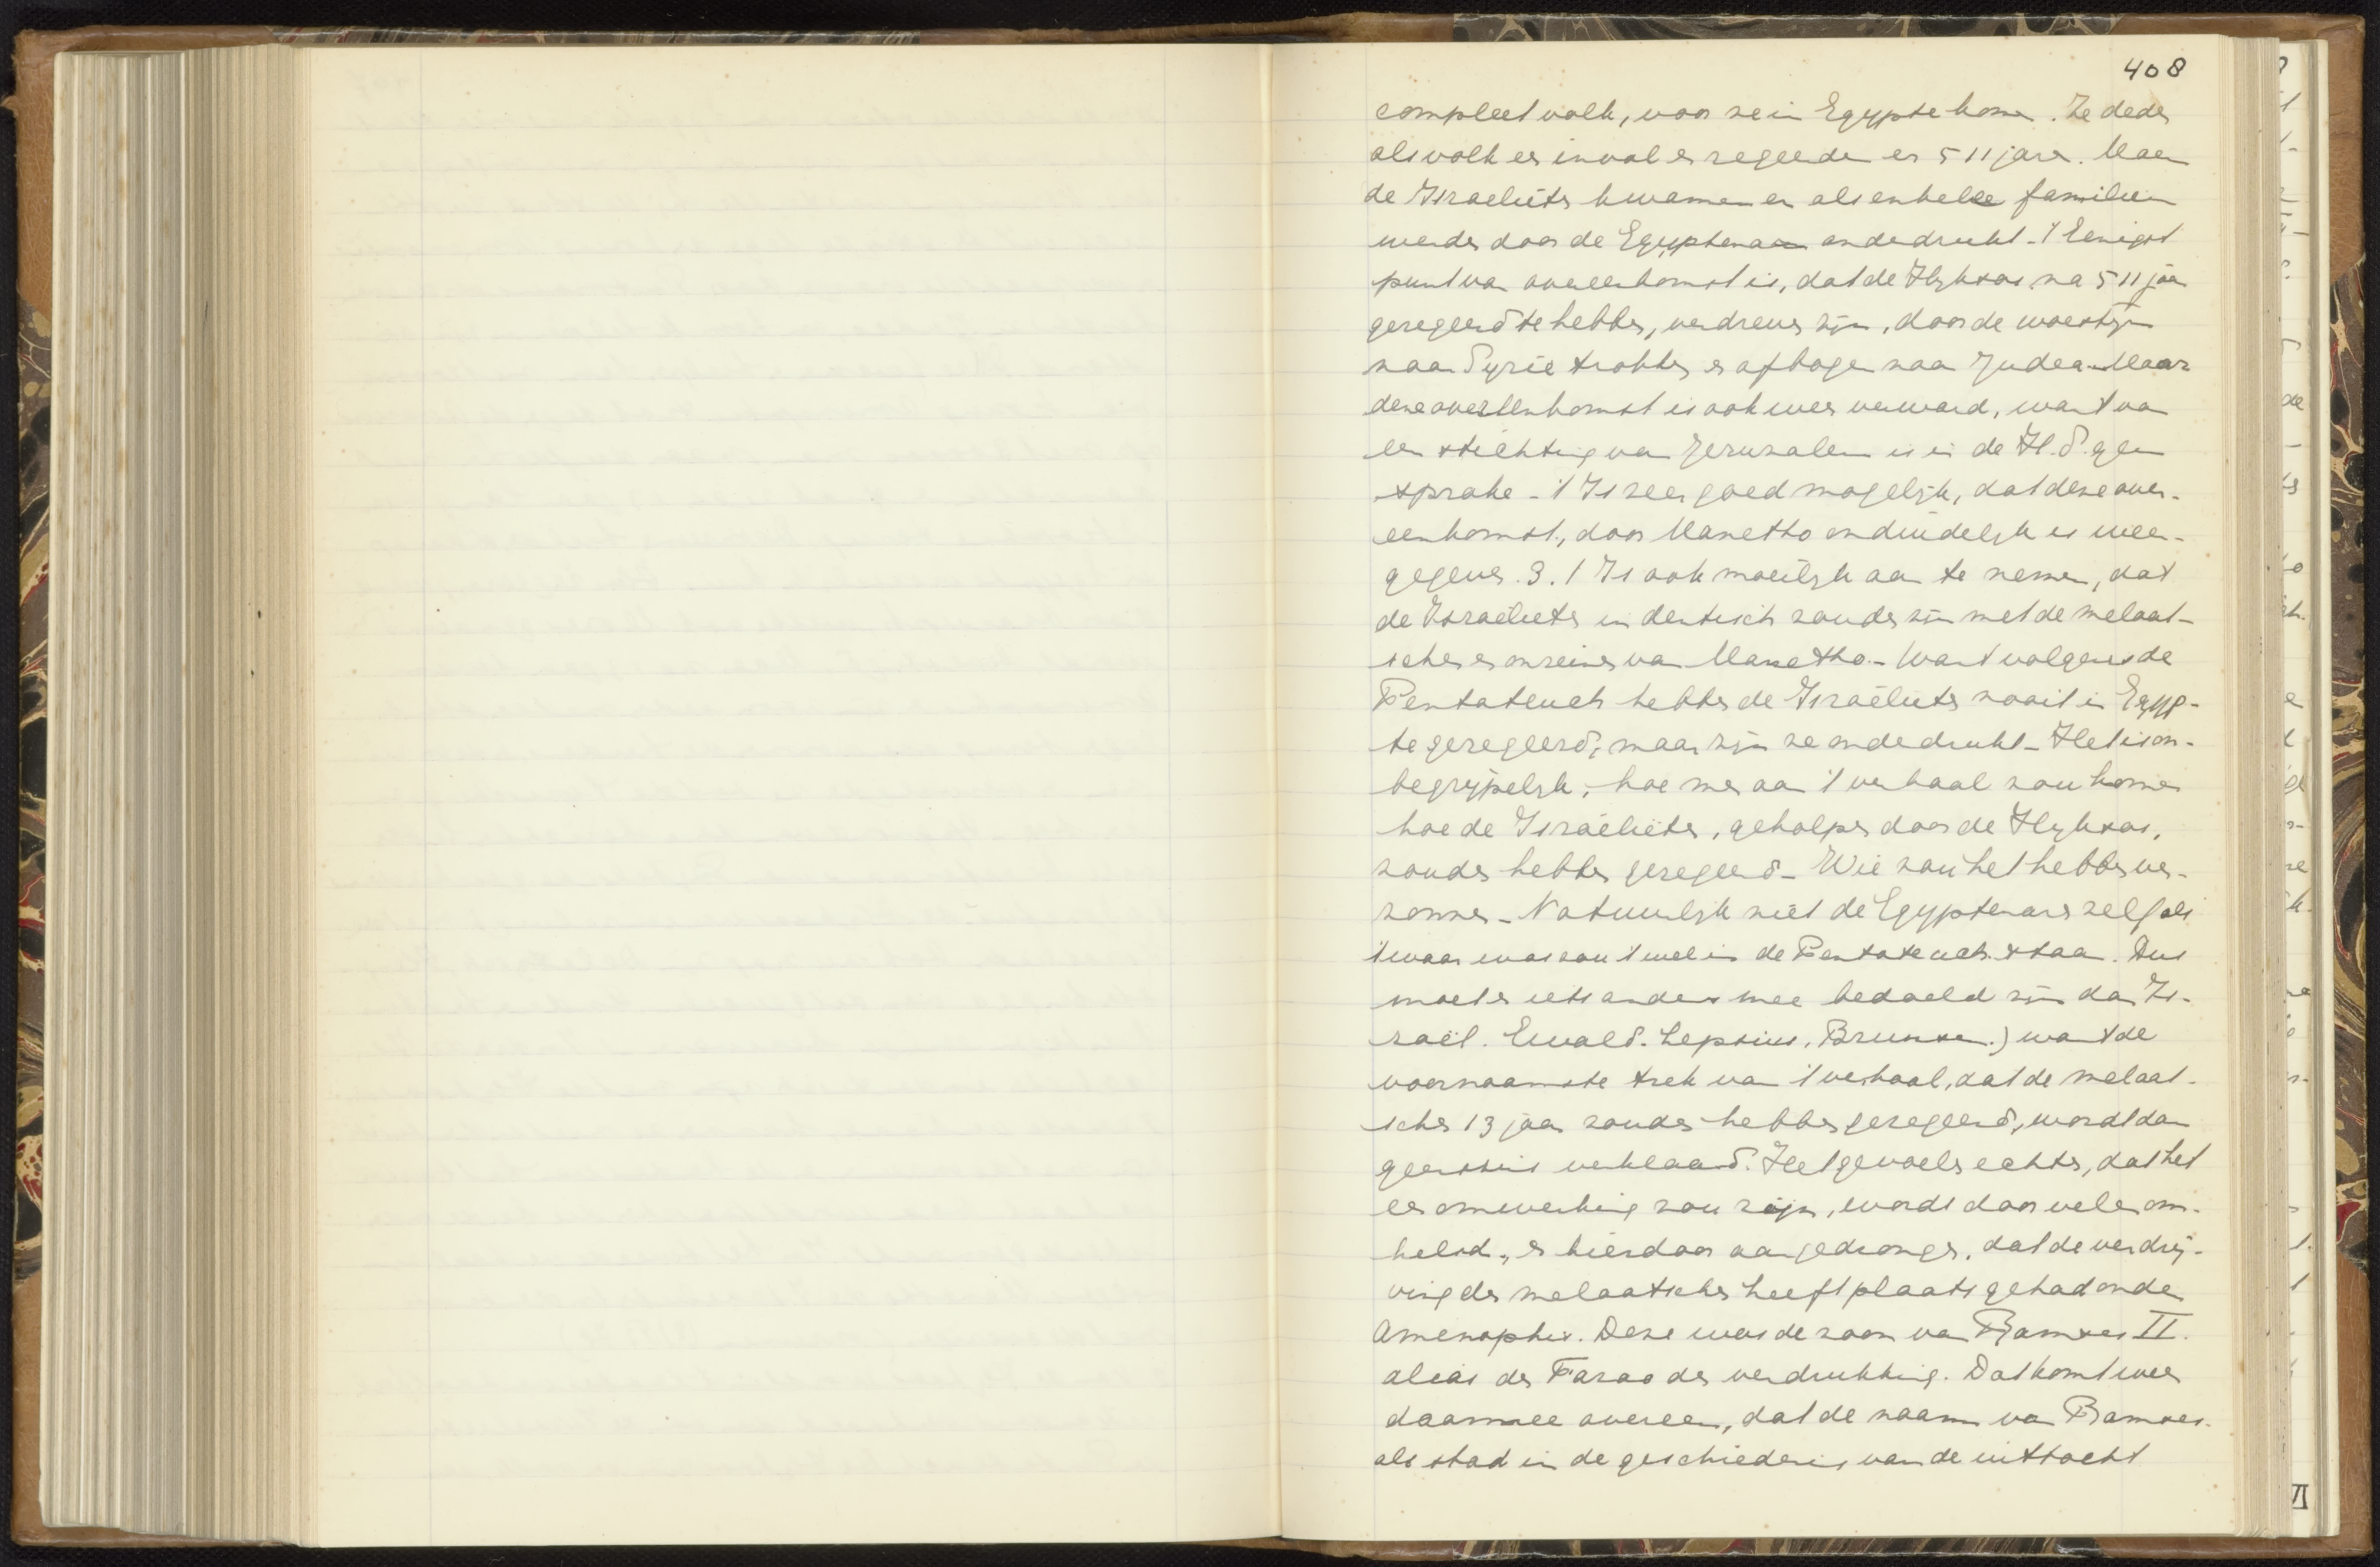 408
compleet volk, voor ze in Egypte komen. Ze deden
als volk een inval en regeerden er 511 jaren. Maar
de Israelieten kwamen er als enkele familie en
werden door de Egyptenaren onderdrukt. 't Eenigst
punt van overeenkomst is, dat de Hyksos na 511 jaar
geregeerd te hebben, verdreven zijn, door de woestijn
naar Syrië trokken en afbogen naar Judea. Maar
deze overeenkomst is ook weer verward, want van
een stichting van Jeruzalem is in de H.S. geen
sprake. 't Is zeer goed mogelijk, dat deze over-
eenkomst, door Manetho onduidelijk is weer-
gegeven. 3. 't Is ook moeilijk aan te nemen, dat
de Israelieten identisch zouden zijn met de melaat-
schen en onreinen van Manetho. Want volgens de
Pentateuch hebben de Israëlieten nooit in Egyp-
te geregeerd, maar zijn ze onderdrukt. Het is on-
begrijpelijk, hoe men aan 't verhaal zou komen
hoe de Israëlieten, geholpen door de Hyksos,
zouden hebben geregeerd. Wie zou het hebben ver-
zonnen. Natuurlijk niet de Egyptenaren zelf als
't waar was zou 't wel in de Pentateuch staan. Dus
moet er iets anders mee bedoeld zijn dan Is-
raël. Ewald. Lepsius, Brunsen.) want de
voornaamste trek van 't verhaal, dat de melaat-
schen 13 jaar zouden hebben geregeerd, wordt dan
geenszins verklaard. Het gevoelen echter, dat het
een omwerking zou zijn, wordt door velen om-
helsd, en hierdoor aangedrongen, dat de verdrij-
ving der melaatschen heeft plaats gehad onder
Amenophis. Deze was de zoon van Ramses II.
alias den Farao der verdrukking. Dat komt weer
daarmee overeen, dat de naam van Ramses
als stad in de geschiedenis van de uittocht
VI